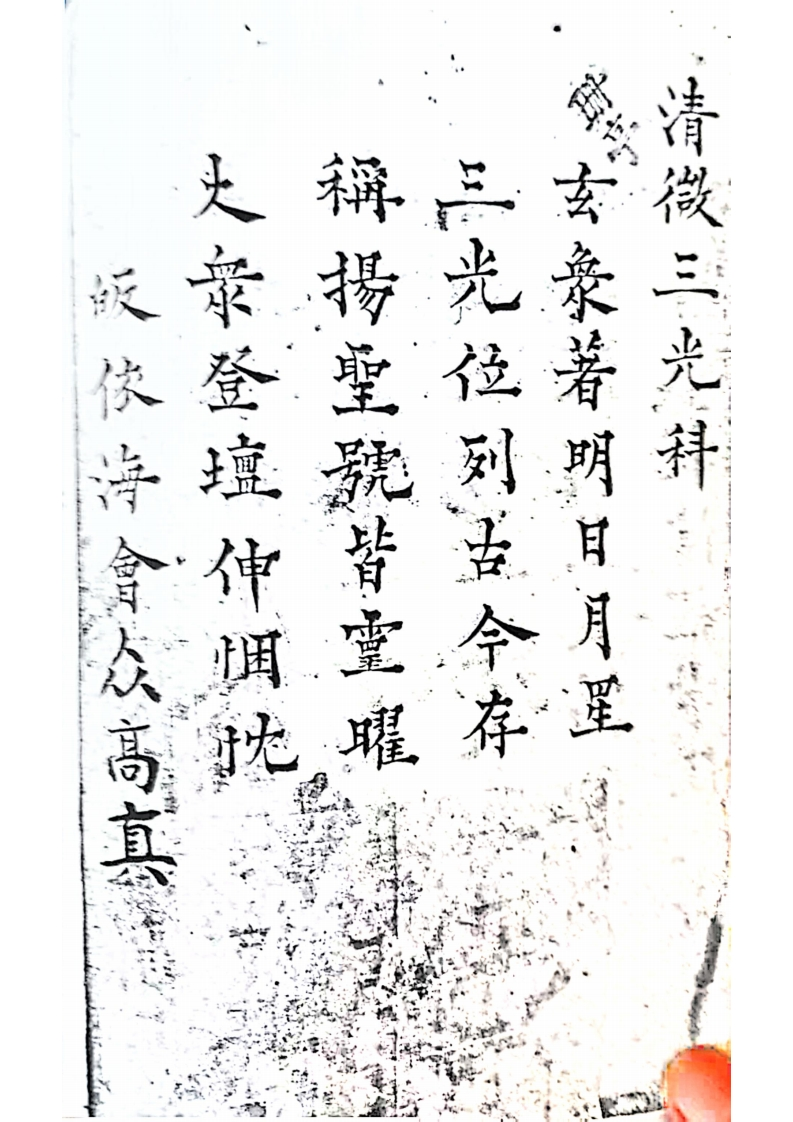 清微三光科
玄衆著明日月星
三光位列古今存
稱揚聖號皆靈曜
大衆登壇伸悃忱
皈依海會众高真